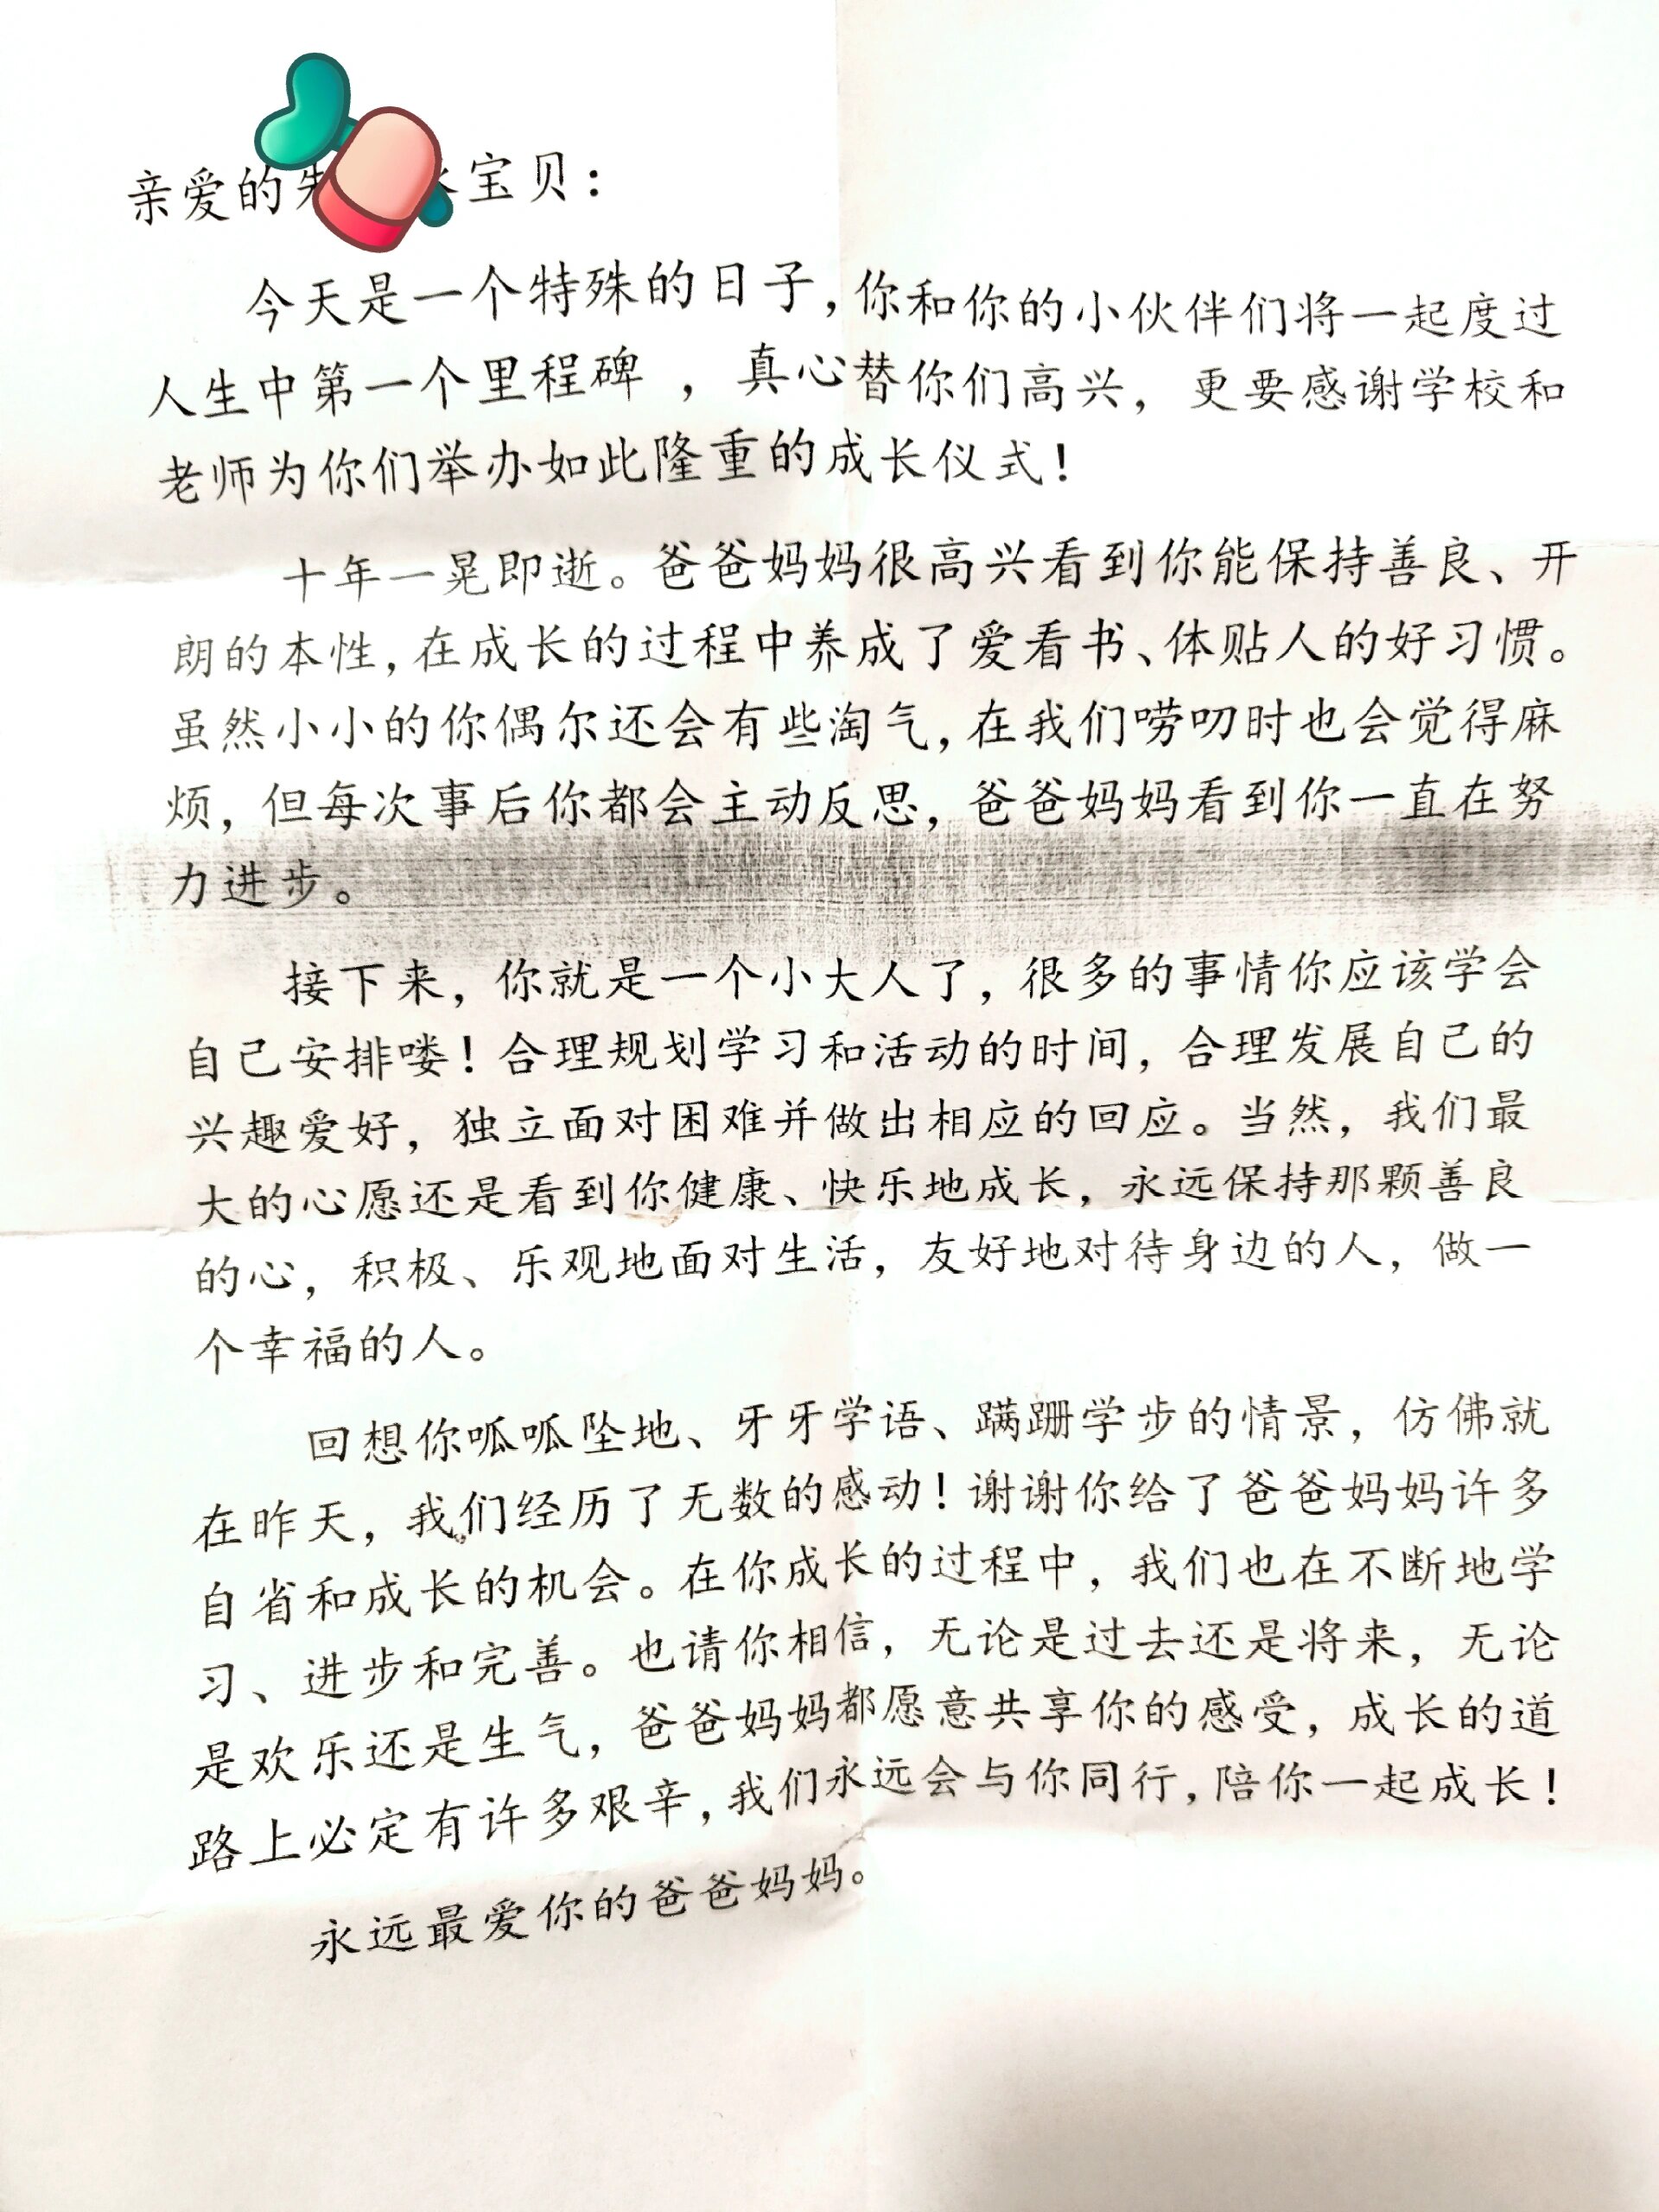 亲爱的 宝贝：
今天是一个特殊的日子，你和你的小伙伴们将一起度过
人生中第一个里程碑 ，真心替你们高兴，更要感谢学校和
老师为你们举办如此隆重的成长仪式！
十年一晃即逝。爸爸妈妈很高兴看到你能保持善良、开
朗的本性，在成长的过程中养成了爱看书、体贴人的好习惯。
虽然小小的你偶尔还会有些淘气，在我们唠叨时也会觉得麻
烦，但每次事后你都会主动反思，爸爸妈妈看到你一直在努
力进步。
接下来，你就是一个小大人了，很多的事情你应该学会
自己安排喽！合理规划学习和活动的时间，合理发展自己的
兴趣爱好，独立面对困难并做出相应的回应。当然，我们最
大的心愿还是看到你健康、快乐地成长，永远保持那颗善良
的心，积极、乐观地面对生活，友好地对待身边的人，做一
个幸福的人。
回想你呱呱坠地、牙牙学语、蹒跚学步的情景，仿佛就
在昨天，我们经历了无数的感动！谢谢你给了爸爸妈妈许多
自省和成长的机会。在你成长的过程中，我们也在不断地学
习、进步和完善。也请你相信，无论是过去还是将来，无论
是欢乐还是生气，爸爸妈妈都愿意共享你的感受，成长的道
路上必定有许多艰辛，我们永远会与你同行，陪你一起成长！
永远最爱你的爸爸妈妈。